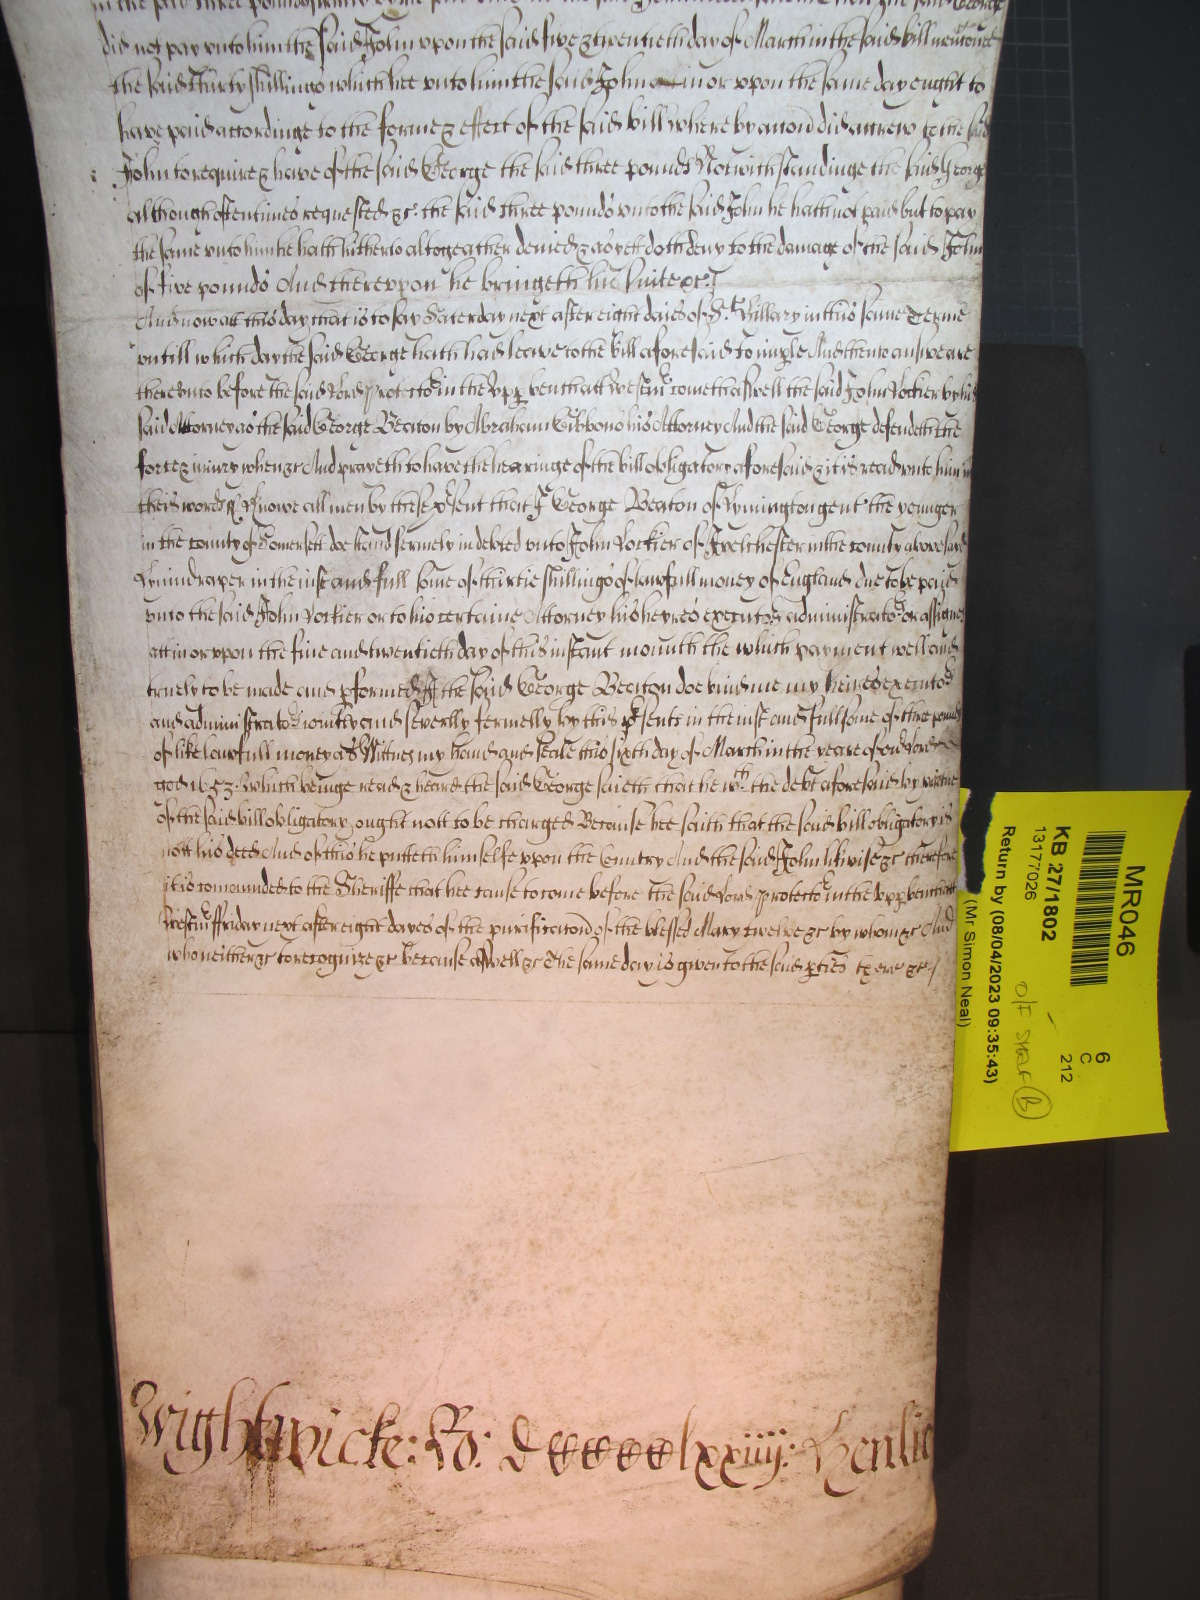 did not pay unto him the said John upon the said five & twentieth day of March in the said bill menconed
the said thirty shillings which hee unto him the said John in or upon the same day ought to
have paid accordinge to the forme & effect of the said bill whereby accon did accrew to the said
John to require & have of the said George the said three pounds Notwithstandinge the said George
although oftentimes requested &c. the said three pounds unto the said John he hath not paid but to pay
the same unto him he hath hitherto altogeather denied & as yett doth deny to the damage of the said John
of five pounds And thereupon he bringeth his suite &c.
And now att this day that is to say Saterday next after eight daies of St. Hillary in this same Terme
untill which day the said George hath had leave to the bill aforesaid to imple And then to answeare
thereunto before the said Lord protector in the upp bench att Westm cometh aswell the said John Lockier by his
said Attorney as the said George Beaton by Abraham Gibbons his Attorney And the said George defendeth the
force & iniury when &c And prayeth to have the hearinge of the bill obligatory aforesaid & it is read unto him in
theis words Knowe all men by these psent that I George Beaton of Kymington gent the younger
in the county of Somersett doe stand fermely indebted unto John Lockier of Ivelchester in the county abovesaid
Lynindraper in the iust and full some of thirtie shillings of lawfull money of England due to be paid
unto the said John Lockier or to his certaine Attorney his heyres executors administrators or assignes
att in or upon the five and twentieth day of this instant mounth the which payment well and
truely to be made and pformed I the said George Beaton doe bind me my heires executors
and administrators iointly and severlly fermelly by this psents in the iust and full some of three pounds
of like lawfull money As Witnes my hand and seale this sixth day of March in the yeare of our Lord
god 1653. Which beinge read & heard the said George saieth that he wth the debt aforesaid by vertue
of the said bill obligatory ought nott to be charged Because hee saith that the said bill obligatory is
nott his deed And of this he putteth himselfe upon the Country And the said John likwise &c therefore
it is comaunded to the Sheriffe that hee cause to come before the said Lord protector in the upp bench att
Westm ffriday next after eight dayes of the purificacon of the blessed Mary twelve &c by whom &c And
who neither &c to recognize &c because aswell &c The same day is given to the said pties there &c
Wightwicke: Ro: D CCCCC lxxiiij: Henlie
MR046
6
C
212
KB 27/1802
13177026
O/F SHELF (B)
Return by (08/04/2023 09:35:43)
(Mr Simon Neal)